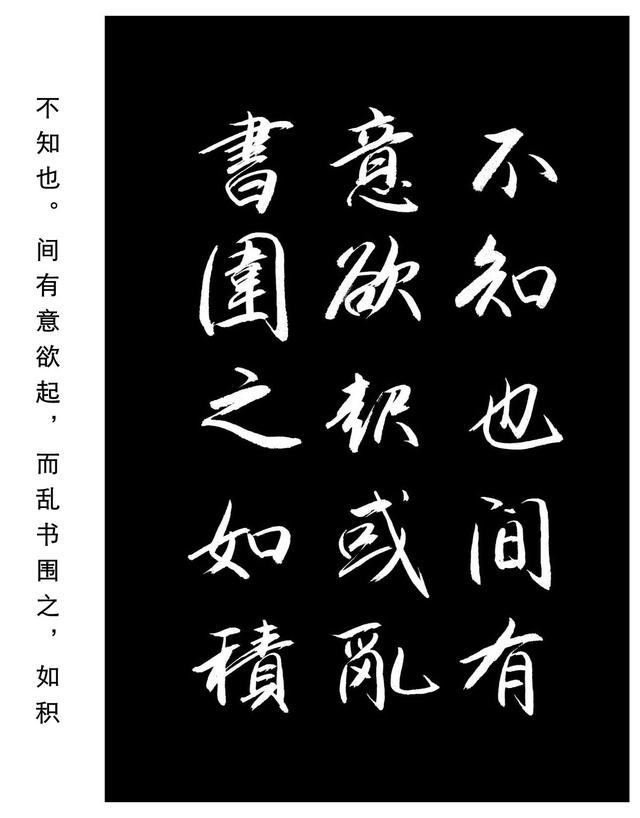 不知也間有
意欲起或亂
書圍之如積
不知也。间有意欲起，而乱书围之，如积